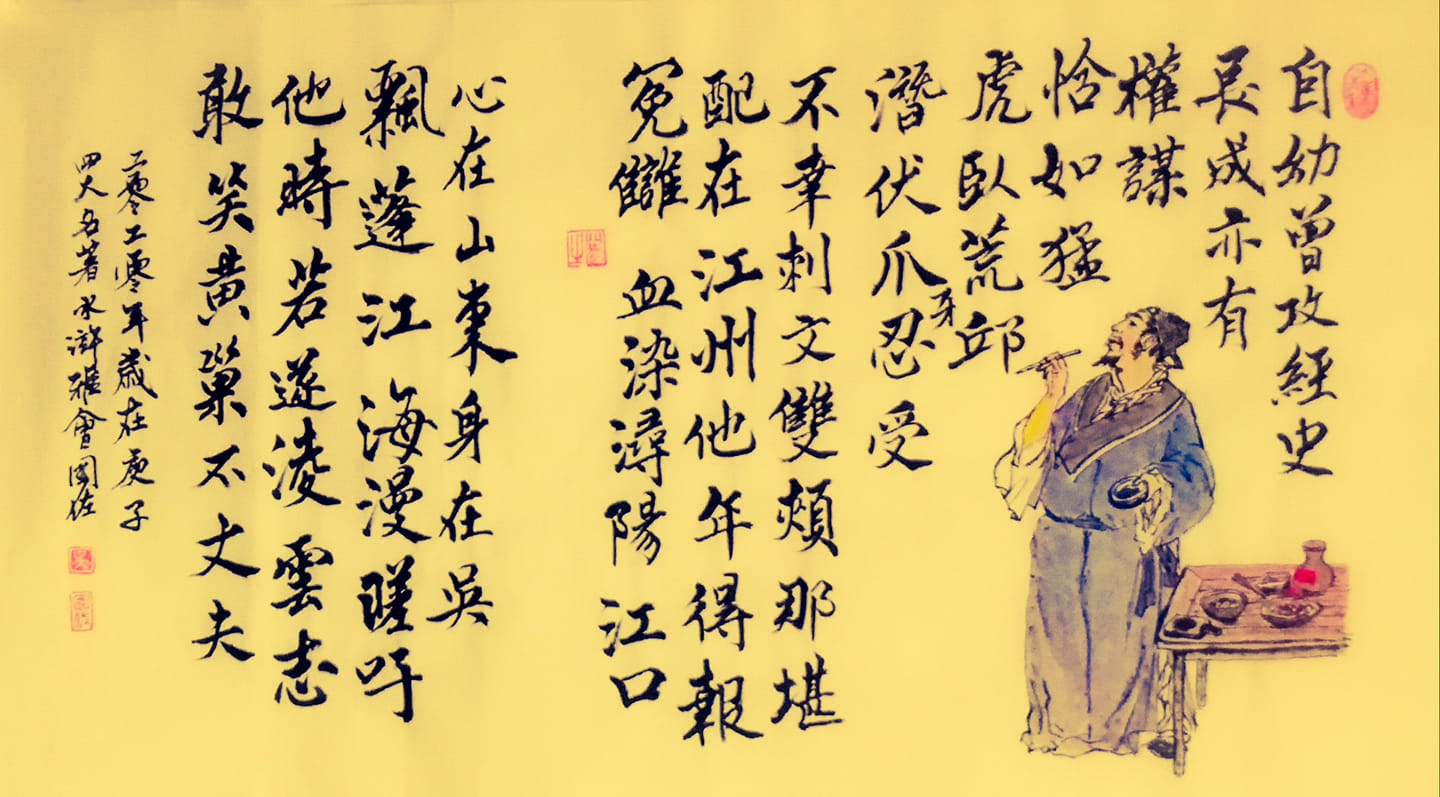 自幼曾攻經史
長成亦有
權謀
恰如猛
虎臥荒邱
潛伏爪牙忍受
不幸刺文雙頰那堪
配在江州他年得報
冤讎血染潯陽江口
心在山東身在吳
飄蓬江海漫嗟吁
他時若遂淩雲志
敢笑黃巢不丈夫
二零二零年歲在庚子
四大名著水滸雅會國佐